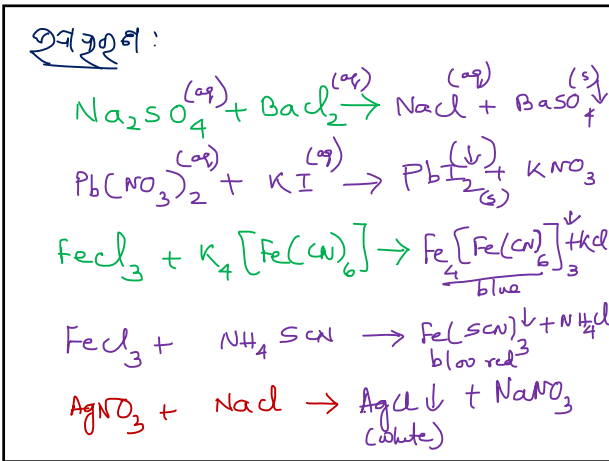 Na₂SO₄(aq) + BaCl₂(aq) → NaCl(aq) + BaSO₄(s)↓
Pb(NO₃)₂(aq) + KI(aq) → PbI₂(↓)(s) + KNO₃
FeCl₃ + K₄[Fe(CN)₆] → Fe₄[Fe(CN)₆]₃↓ + KCl
blue
FeCl₃ + NH₄SCN → Fe(SCN)₃↓ + NH₄Cl
bloo red
AgNO₃ + NaCl → AgCl↓ + NaNO₃
(white)